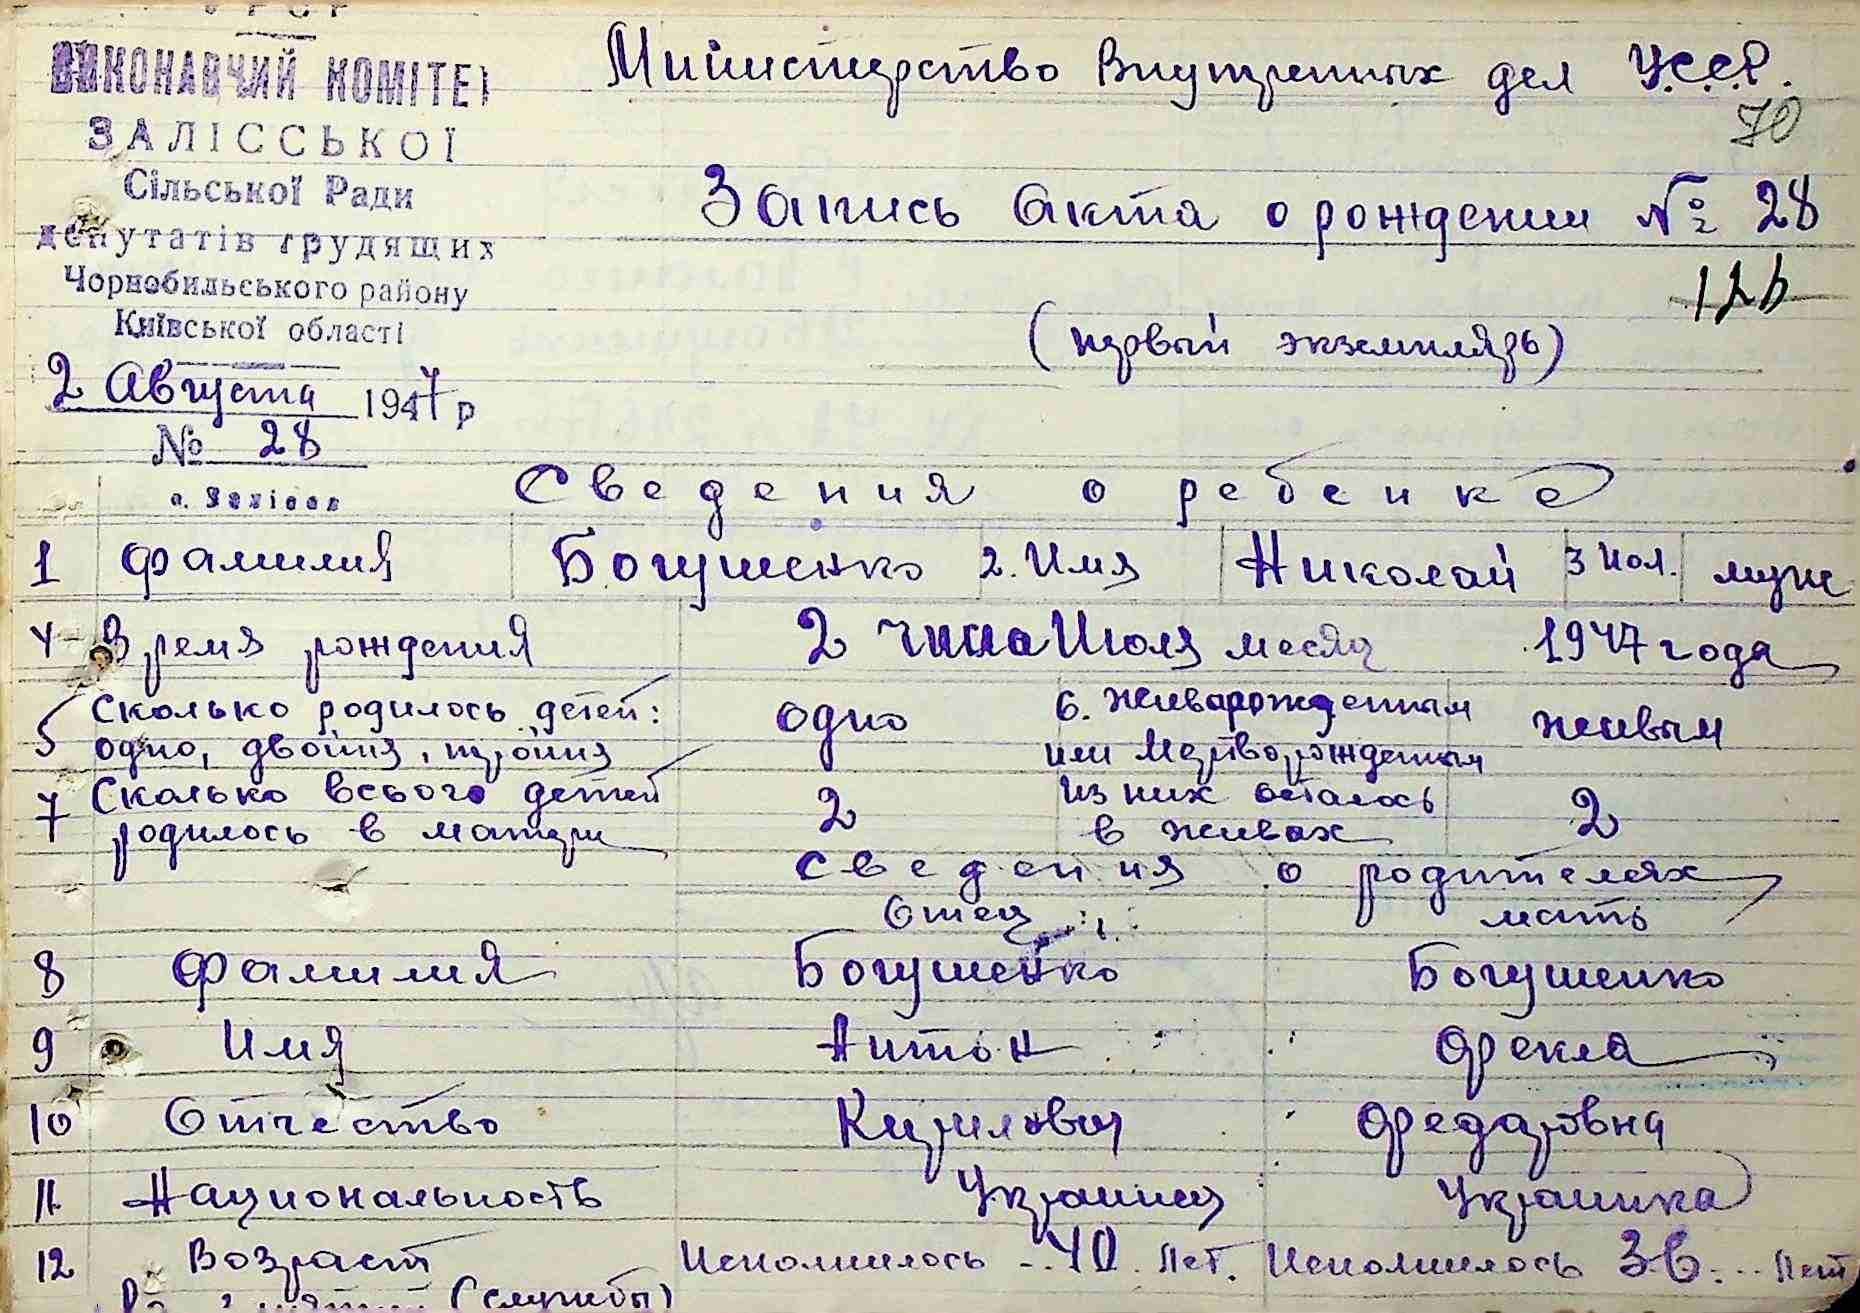 УРСР
ВИКОНАВЧИЙ КОМІТЕТ
ЗАЛІССЬКОЇ
Сільської Ради
депутатів трудящих
Чорнобильського району
Київської області
2 Августа 1947 р
№ 28
с. Залісся
Министерство Внутренных дел У.С.С.Р.
70
Запись акта о рождении № 28
126
(первый экземплярь)
Сведения о ребенке
1 Фамилия Богушенко 2. Имя Николай 3 Пол. муж
4 Время рождения 2 числа Июля месяц 1947 года
5 Сколько родилось детей: одно 6. Живарожденным живым
одно, двойня, тройня или Мертворожденным
7 Сколько всього детей 2 Из них осталось 2
родилось в матери в живах
Сведения о родителях
Отец мать
8 Фамилия Богушенко Богушенко
9 Имя Антон Фекла
10 Отчество Кирилович Федаровна
11 Национальность Украинец Украинка
12 Возраст Исполнилось 40 лет. Исполнилось 36 лет
(службы)